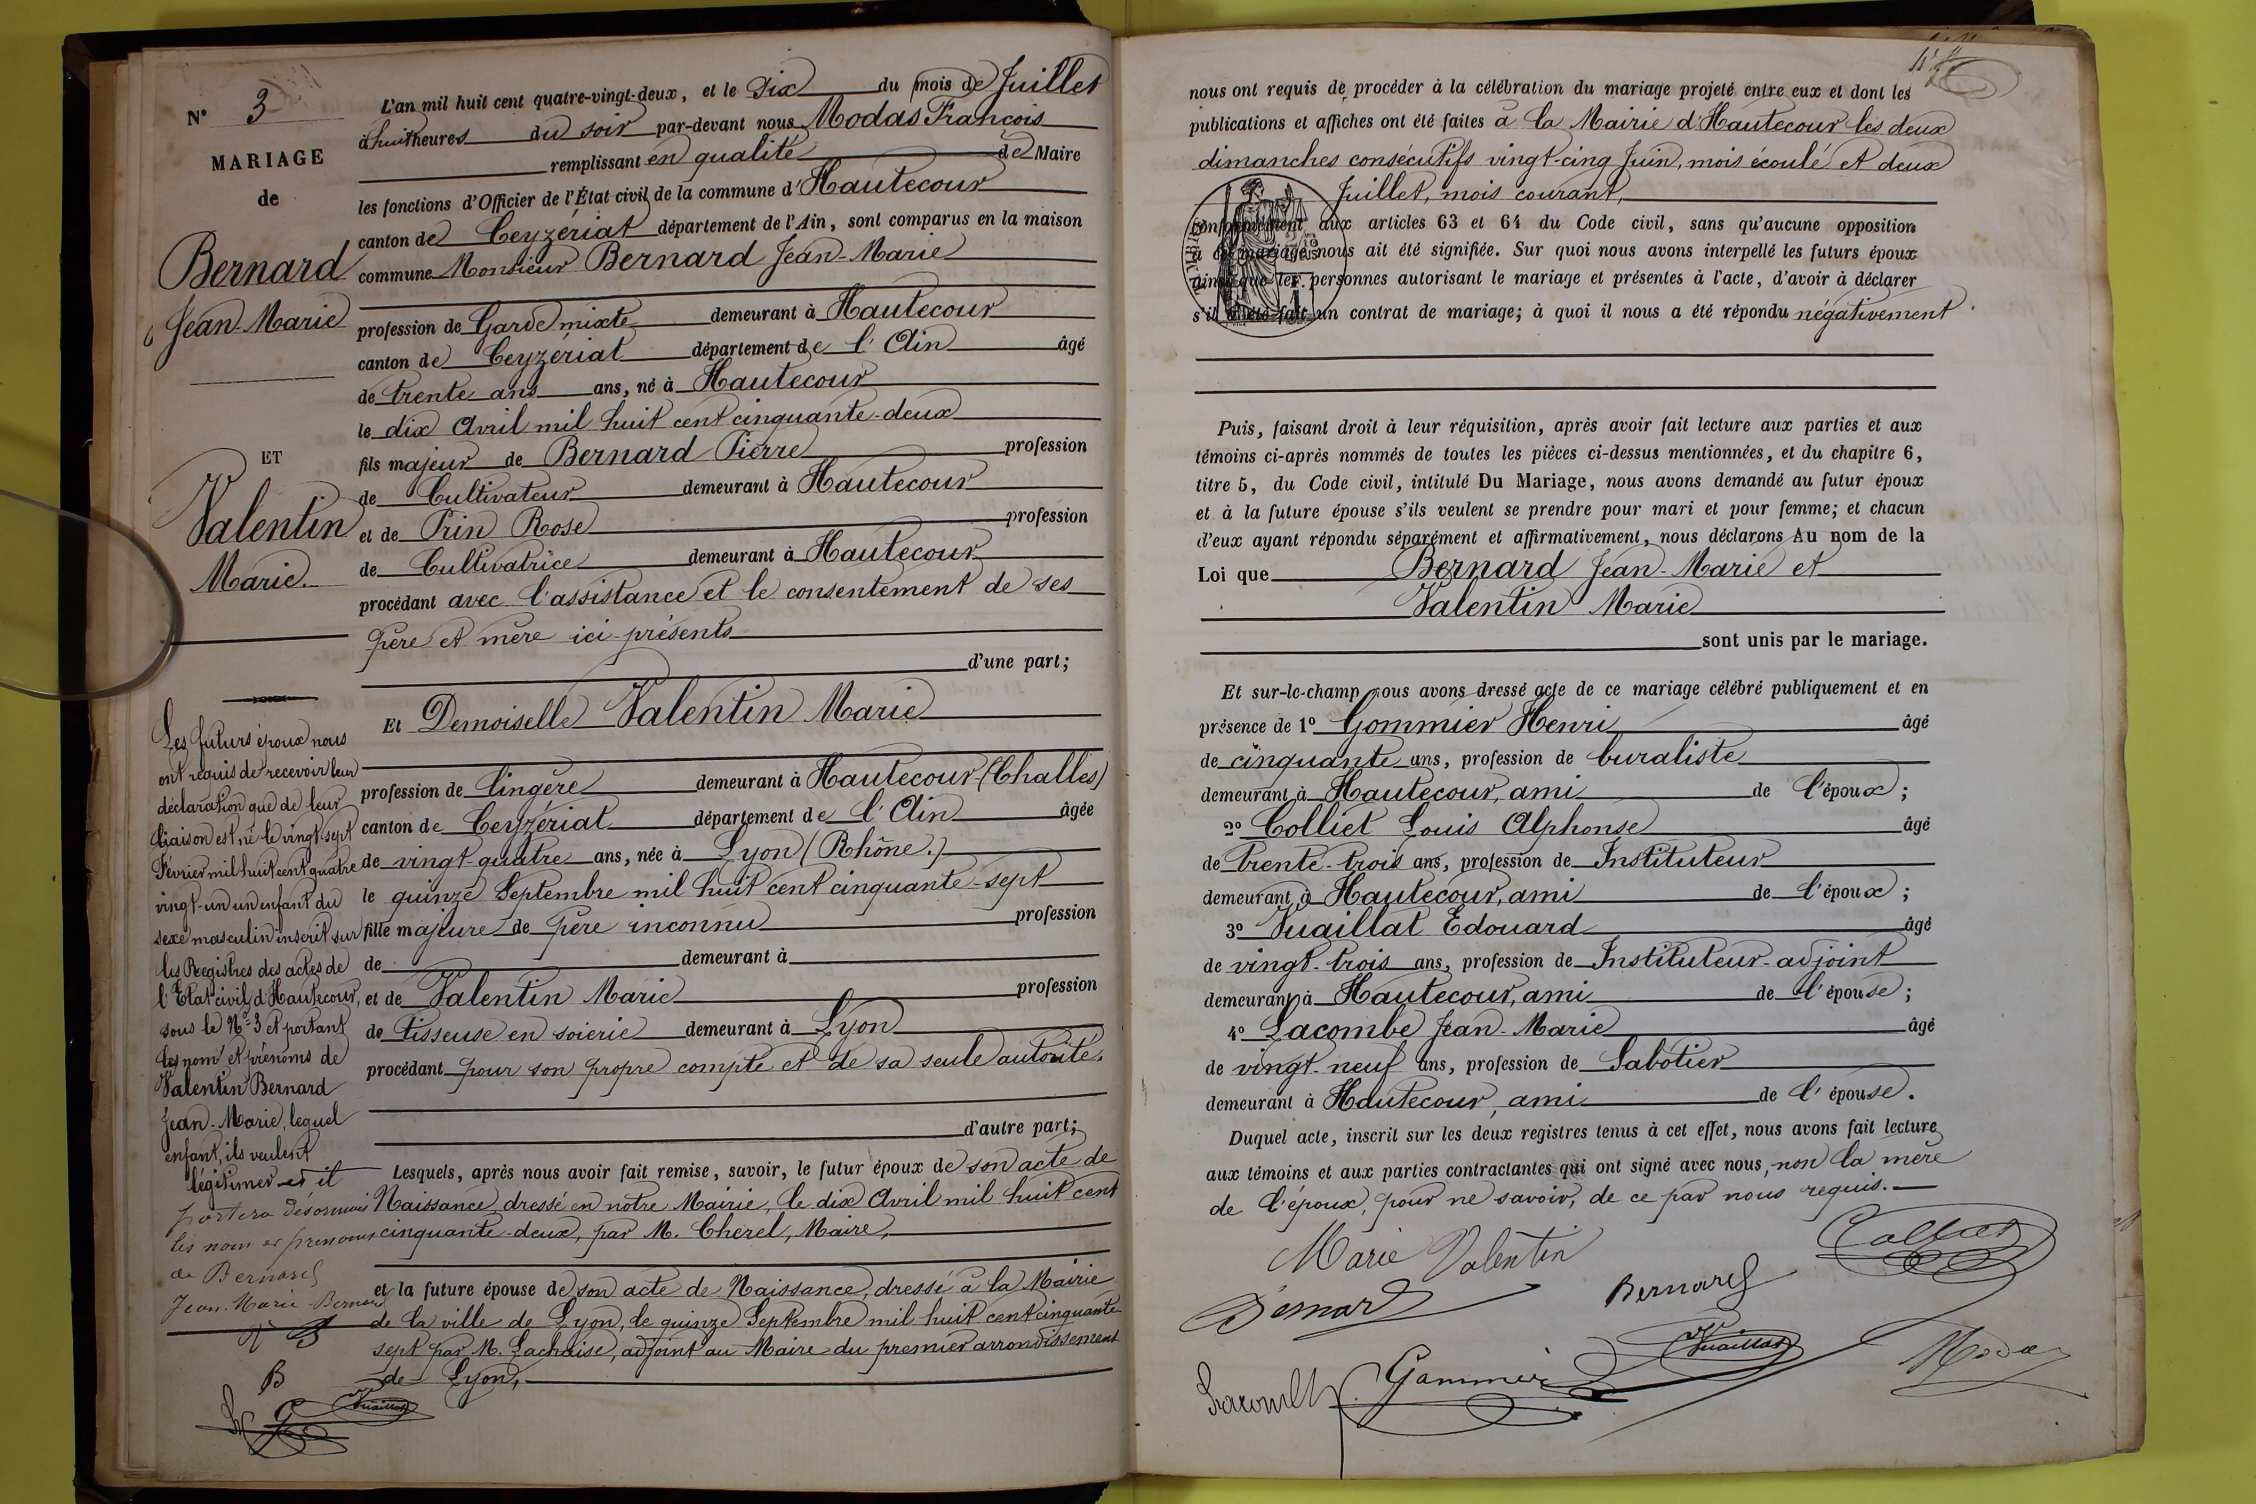 N° 3
MARIAGE
de
Bernard
Jean-Marie
ET
Valentin
Marie.
Les futurs époux nous
ont requis de recevoir leur
déclaration que de leur
liaison est né le vingt-sept
Février mil huit cent quatre
vingt-un un enfant du
sexe masculin inscrit sur
les Registres des actes de
l'Etat civil d'Hautecour,
sous le N° 3 et portant
les nom et prénoms de
Valentin Bernard
Jean-Marie, lequel
enfant, ils veulent
légitimer et il
portera désormais
les nom et prenoms
de Bernard
Jean-Marie Bernard
B
Vuaillat
L'an mil huit cent quatre-vingt-deux, et le Dix du mois de Juillet
à huit heures du soir par-devant nous Modas François
remplissant en qualité de Maire
les fonctions d'Officier de l'État civil de la commune d'Hautecour
canton de Ceyzériat département de l'Ain, sont comparus en la maison
commune Monsieur Bernard Jean-Marie
profession de Garde mixte demeurant à Hautecour
canton de Ceyzériat département de l'Ain âgé
de trente ans ans, né à Hautecour
le dix Avril mil huit cent cinquante-deux
fils majeur de Bernard Pierre profession
de Cultivateur demeurant à Hautecour
et de Prin Rose profession
de Cultivatrice demeurant à Hautecour
procédant avec l'assistance et le consentement de ses
père et mère ici-présents
d'une part;
Et Demoiselle Valentin Marie
profession de lingère demeurant à Hautecour (Challes)
canton de Ceyzériat département de l'Ain âgée
de vingt-quatre ans, née à Lyon (Rhône.)
le quinze Septembre mil huit cent cinquante-sept
fille majeure de père inconnu profession
de demeurant à
et de Valentin Marie profession
de Tisseuse en soierie demeurant à Lyon
procédant pour son propre compte et de sa seule autorité.
d'autre part;
Lesquels, après nous avoir fait remise, savoir, le futur époux de son acte de
Naissance, dressé en notre Mairie, le dix Avril mil huit cent
cinquante-deux, par M. Cherel, Maire,
et la future épouse de son acte de Naissance, dressé à la Mairie
de la ville de Lyon, le quinze Septembre mil huit cent cinquante
sept par M. Lachaise, adjoint au Maire du premier arrondissement
de Lyon,
nous ont requis de procéder à la célébration du mariage projeté entre eux et dont les
publications et affiches ont été faites à la Mairie d'Hautecour les deux
dimanches consécutifs vingt-cinq Juin, mois écoulé et deux
Juillet, mois courant,
conformément aux articles 63 et 64 du Code civil, sans qu'aucune opposition
à ce mariage nous ait été signifiée. Sur quoi nous avons interpellé les futurs époux
ainsi que les personnes autorisant le mariage et présentes à l'acte, d'avoir à déclarer
s'il a été fait un contrat de mariage; à quoi il nous a été répondu négativement.
Puis, faisant droit à leur réquisition, après avoir fait lecture aux parties et aux
témoins ci-après nommés de toutes les pièces ci-dessus mentionnées, et du chapitre 6,
titre 5, du Code civil, intitulé Du Mariage, nous avons demandé au futur époux
et à la future épouse s'ils veulent se prendre pour mari et pour femme; et chacun
d'eux ayant répondu séparément et affirmativement, nous déclarons Au nom de la
Loi que Bernard Jean-Marie et
Valentin Marie
sont unis par le mariage.
Et sur-le-champ nous avons dressé acte de ce mariage célébré publiquement et en
présence de 1° Gommier Henri âgé
de cinquante ans, profession de buraliste
demeurant à Hautecour, ami de l'époux;
2° Colliet Louis Alphonse âgé
de trente-trois ans, profession de Instituteur
demeurant à Hautecour, ami de l'époux;
3° Vuaillat Edouard âgé
de vingt-trois ans, profession de Instituteur-adjoint
demeurant à Hautecour, ami de l'épouse;
4° Lacombe Jean-Marie âgé
de vingt-neuf ans, profession de Sabotier
demeurant à Hautecour, ami de l'épouse.
Duquel acte, inscrit sur les deux registres tenus à cet effet, nous avons fait lecture
aux témoins et aux parties contractantes qui ont signé avec nous, non la mère
de l'époux, pour ne savoir, de ce par nous requis.
Marie Valentin
Colliet
Bernard
Bernard
Vuaillat
Gommier
Modas